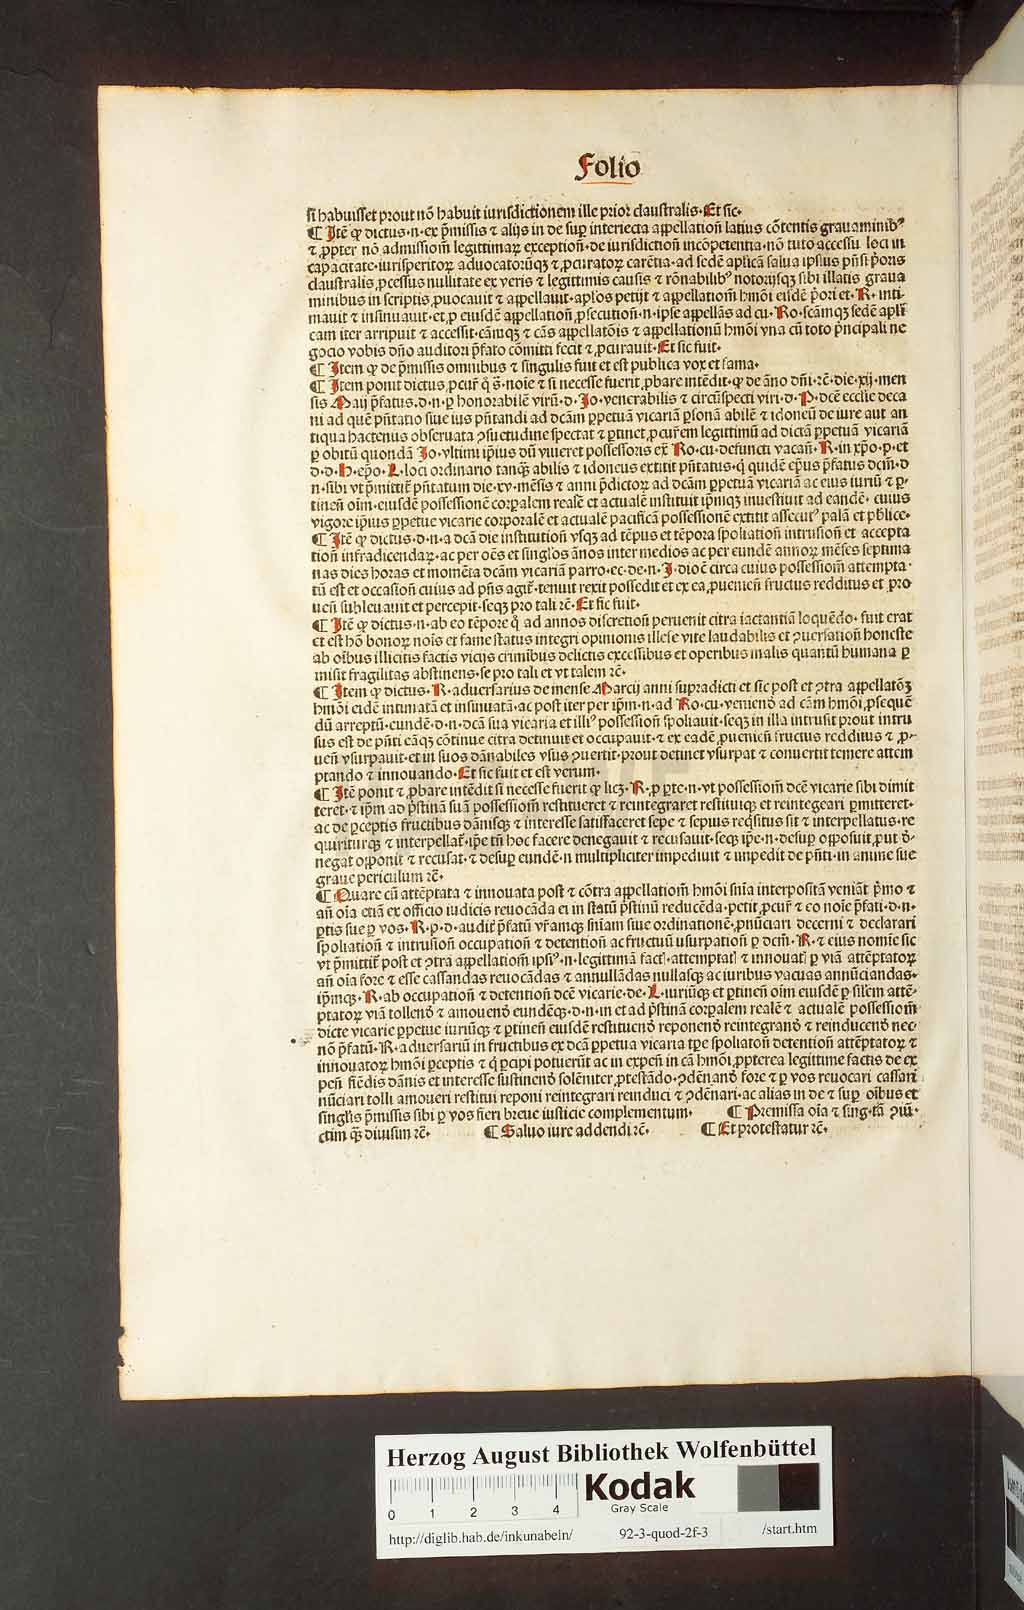 Folio
si habuisset prout nō habuit iurisdictionem ille prior claustralis. Et sic.
¶ Itē ꝙ dictus .n. ex p̄missis ⁊ alijs in de suꝑ interiecta appellation̄ latius cōtentis grauaminibꝰ
⁊ ꝓpter nō admissiom̄ legittimaꝝ exception̄. de iurisdiction̄ incōpetentia. nō tuto accessu loci in
capacitate. iurisperitoꝝ aduocatorūqꝫ ⁊ ꝓcuratoꝝ carētia. ad sedē aplicā salua ipsius pn̄ti p̄oris
claustralis, ꝓcessus nullitate ex veris ⁊ legittimis causis ⁊ rōnabilibꝰ notorijsqꝫ sibi illatis graua
minibus in scriptis, ꝓuocauit ⁊ appellauit. aplos petijt ⁊ appellatiom̄ hmōi eisdē p̄ori et. R. inti-
mauit ⁊ insinuauit. et, ꝓ eiusdē appellation̄ ꝓsecution̄. n. ipse appellās ad cu. Ro. scāmqꝫ sedē apli
cam iter arripuit ⁊ accessit. cāmqꝫ ⁊ cās appellatōis ⁊ appellationū hmōi vna cū toto p̄ncipali ne
gocio vobis dn̄o auditori p̄fato cōmitti fecit ⁊ ꝓcurauit. Et sic fuit.
¶ Item ꝙ de p̄missis omnibus ⁊ singulis fuit et est publica vox et fama.
¶ Item ponit dictus, ꝓcur̄ q̄ s̄. noīe ⁊ si necesse fuerit, ꝓbare intēdit. ꝙ de āno dn̄i. ꝛc̄. die. xij. men
sis Maij p̄fatus. d. n. ꝑ honorabilē virū. d. Jo. venerabilis ⁊ circūspecti viri. d. P. dcē ecclie deca
ni ad quē pn̄tatio siue ius pn̄tandi ad dcām ꝑpetuā vicariā ꝑsonā abilē ⁊ idoneū de iure aut an
tiqua hactenus obseruata ꝯsuetudine spectat ⁊ ꝑtinet, ꝓcur̄em legittimū ad dictā ꝑpetuā vicariā
ꝑ obitū quondā Jo. vltimi ip̄ius dū viueret possessoris ex̄ Ro. cu. defuncti vacan̄. R. in xp̄o. p. et
d. d. H. ep̄o. L. loci ordinario tanqꝫ abilis ⁊ idoneus extitit pn̄tatus. q̄ quidē ep̄us p̄fatus dcm̄. d
n. sibi vt p̄mittit̄ pn̄tatum die. xv. mēsis ⁊ anni p̄dictoꝝ ad dcām ꝑpetuā vicariā ac eius iuriū ⁊ ꝑ-
tinen̄ oim̄. eiusdē possessionē corꝑalem realē et actualē instituit ip̄mqꝫ inuestiuit ad eandē. cuius
vigore ip̄ius ꝑpetue vicarie corporalē et actualē pacificā possessionē extitit assecutꝰ palā et pb̄lice.
¶ Itē ꝙ dictus. d. n. a dcā die institution̄ vsqꝫ ad tēpus et tēpora spoliation̄ intrusion̄ et accepta
tion̄ infradicendaꝝ. ac per oēs et sing̾os ānos inter medios ac per eundē annoꝝ mēses septima
nas dies horas et momēta dcām vicariā parro. ec. de. n. J. dioc̄ circa cuius possessiom̄ attempta-
tū est et occasion̄ cuius ad pn̄s agit̄. tenuit rexit possedit et ex ea, ꝓuenien̄ fructus redditus et pro
uen̄ subleuauit et percepit. seqꝫ pro tali ꝛc̄. Et sic fuit.
¶ Itē ꝙ dictus. n. ab eo tēpore q̄ ad annos discretion̄ peruenit citra iactantiā loquēdo. fuit erat
et est hō bonoꝝ noīs et fame status integri opinionis illese vite laudabilis et ꝯuersation̄ honeste
ab oībus illicitis factis vicijs criminibus delictis excessibus et operibus malis quantū humana ꝑ
misit fragilitas abstinens. se pro tali et vt talem ꝛc̄.
¶ Item ꝙ dictus. R. aduersarius de mense Marcij anni supradicti et sic post et ꝯtra appellatōꝫ
hmōi eidē intimatā et insinuatā. ac post iter per ip̄m. n. ad Ro. cu. veniend̄ ad cām hmōi, ꝓsequē
dū arreptū. eundē. d. n. dcā sua vicaria et illiꝰ possession̄ spoliauit. seqꝫ in illa intrusit prout intru
sus est de pn̄ti eāqꝫ cōtinue citra detinuit et occupauit. ⁊ ex eadē, ꝓuenien̄ fructus redditus ⁊ ꝓ-
uen̄ vsurpauit. et in suos dānabiles vsus ꝯuertit. prout detinet vsurpat ⁊ conuertit temere attem
ptando ⁊ innouando. Et sic fuit et est verum.
¶ Itē ponit ⁊ ꝓbare intēdit si necesse fuerit ꝙ licꝫ. R. ꝑ ꝑte. n. vt possessiom̄ dcē vicarie sibi dimit
teret. ⁊ ip̄m ad p̄stinā suā possessiom̄ restitueret ⁊ reintegraret restituiqꝫ et reintegrari ꝑmitteret.
ac de ꝑceptis fructibus dānisqꝫ ⁊ interesse satisfaceret sepe ⁊ sepius reqͥsitus sit ⁊ interpellatus. re
quiriturqꝫ ⁊ interpellat̄. ip̄e tn̄ hoc facere denegauit ⁊ recusauit. seqꝫ ip̄e. n. desuꝑ opposuit, ꝓut d̄-
negat opponit ⁊ recusat. ⁊ desuꝑ eundē. n multipliciter impediuit ⁊ impedit de pn̄ti. in anime sue
graue periculum ꝛc̄.
¶ Quare cū attēptata ⁊ innouata post ⁊ cōtra appellatiom̄ hmōi sn̄ia interpositā veniāt p̄mo ⁊
an̄ oīa etiā ex officio iudicis reuocāda et in statū p̄stinū reducēda. petit, ꝓcur̄ ⁊ eo noīe p̄fati. d. n.
ꝑtis sue ꝑ vos. R. p. d. audit̄ p̄fatū vr̄amqꝫ sn̄iam siue ordinationē, ꝓnūciari decerni ⁊ declarari
spoliation̄ ⁊ intrusion̄ occupation̄ ⁊ detention̄ ac fructuū usurpation̄ ꝑ dcm̄. R. ⁊ eius nomine sic
vt p̄mittit̄ post et ꝯtra appellatiom̄ ipsiꝰ. n. legittimā fact̄. attemptat̄ ⁊ innouat̄ ꝑ viā attēptatoꝝ
an̄ oīa fore ⁊ esse cassandas reuocādas ⁊ annullādas nullasqꝫ ac iuribus vacuas annūciandas.
ip̄mqꝫ. R. ab occupation̄ ⁊ detention̄ dcē vicarie. de. L. iuriūqꝫ et ꝑtinen̄ oim̄ eiusdē ꝑ sīlem attē-
ptatoꝝ viā tollend̄ ⁊ amouend̄ eundēqꝫ. d. n. in et ad p̄stinā corꝑalem realē ⁊ actualē possessiom̄
dicte vicarie ꝑpetue iuriūqꝫ ⁊ ꝑtinen̄ eiusdē restituend̄ reponend̄ reintegrand̄ ⁊ reinducend̄ nec
nō p̄fatū. R. aduersariū in fructibus ex dcā ꝑpetua vicaria tꝑe spoliation̄ detention̄ attēptatoꝝ ⁊
innouatoꝝ hmōi ꝑceptis ⁊ q̄ ꝑcipi potuerūt ac in expen̄ in cā hmōi, ꝓpterea legittime factis de ex
pen̄ fiēdis dānis et interesse sustinend̄ solēniter, ꝓtestādo. ꝯdēnand̄ fore ⁊ ꝑ vos reuocari cassari
nūciari tolli amoueri restitui reponi reintegrari reinduci ⁊ ꝯdēnari. ac alias in de ⁊ suꝑ oībus et
singlis p̄missis sibi ꝑ vos fieri breue iusticie complementum. ¶ Premissa oīa ⁊ sing. tā ꝯiū-
ctim qꝫ diuisim ꝛc̄. ¶ Saluo iure addendi ꝛc̄. ¶ Et protestatur ꝛc̄.
Herzog August Bibliothek Wolfenbüttel
0 1 2 3 4
Kodak
Gray Scale
http://diglib.hab.de/inkunabeln/ 92-3-quod-2f-3 /start.htm